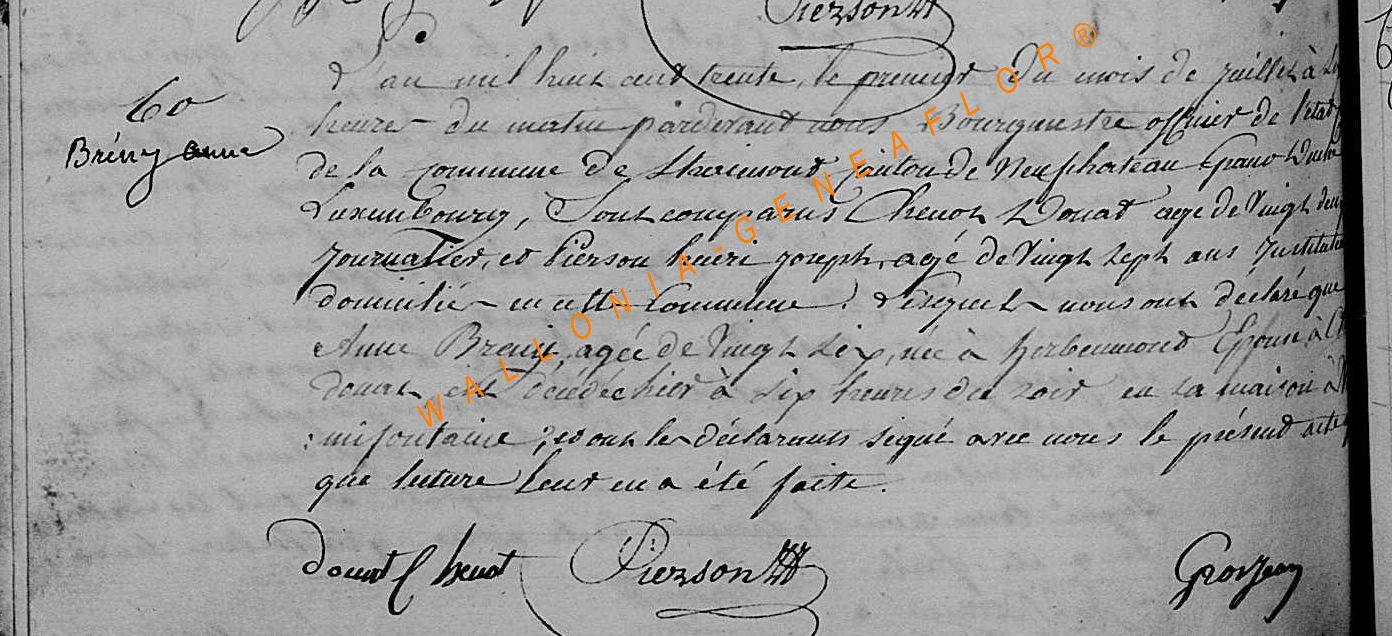 Pierson
L'an mil huit cent trente, le premier du mois de juillet à
60
heure du matin pardevant nous Bourgmestre officier de l'état
Brény anne
de la commune de Straimont canton de Neufchateau Grand Duché
Luxembourg, Sont comparus Chenot Donat agé de Vingt deux
journalier, et Pierson henri joseph, agé de Vingt sept ans Instituteur
domicilié en cette commune, Lesquels nous ont déclaré que
Anne Breny, agée de Vingt six, née à herbeumont Epouse à
donat est décédé hier à six heures du soir en sa maison à
mifontaine, et ont les déclarants signé avec nous le présent acte
que lecture leur en a été faite.
donat Chenot Pierson Grosjean
WALLONIA-GENEAFLOR®